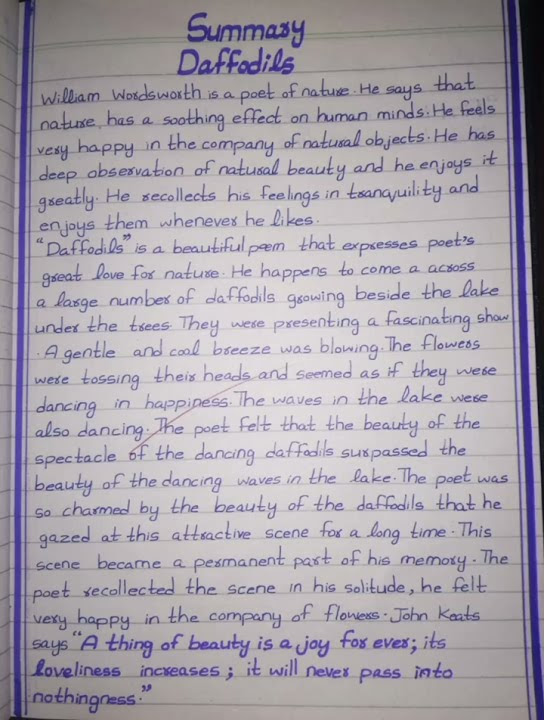 Summary
Daffodils
William Wordsworth is a poet of nature. He says that
nature, has a soothing effect on human minds. He feels
very happy in the company of natural objects. He has
deep observation of natural beauty and he enjoys it
greatly. He recollects his feelings in tranquility and
enjoys them whenever he likes.
"Daffodils" is a beautiful poem that expresses poet's
great love for nature. He happens to come a across
a large number of daffodils growing beside the lake
under the trees. They were presenting a fascinating show
. A gentle and cool breeze was blowing. The flowers
were tossing their heads and seemed as if they were
dancing in happiness. The waves in the lake were
also dancing. The poet felt that the beauty of the
spectacle of the dancing daffodils surpassed the
beauty of the dancing waves in the lake. The poet was
so charmed by the beauty of the daffodils that he
gazed at this attractive scene for a long time. This
scene became a permanent part of his memory. The
poet recollected the scene in his solitude, he felt
very happy in the company of flowers. John Keats
says "A thing of beauty is a joy for ever; its
loveliness increases; it will never pass into
nothingness."